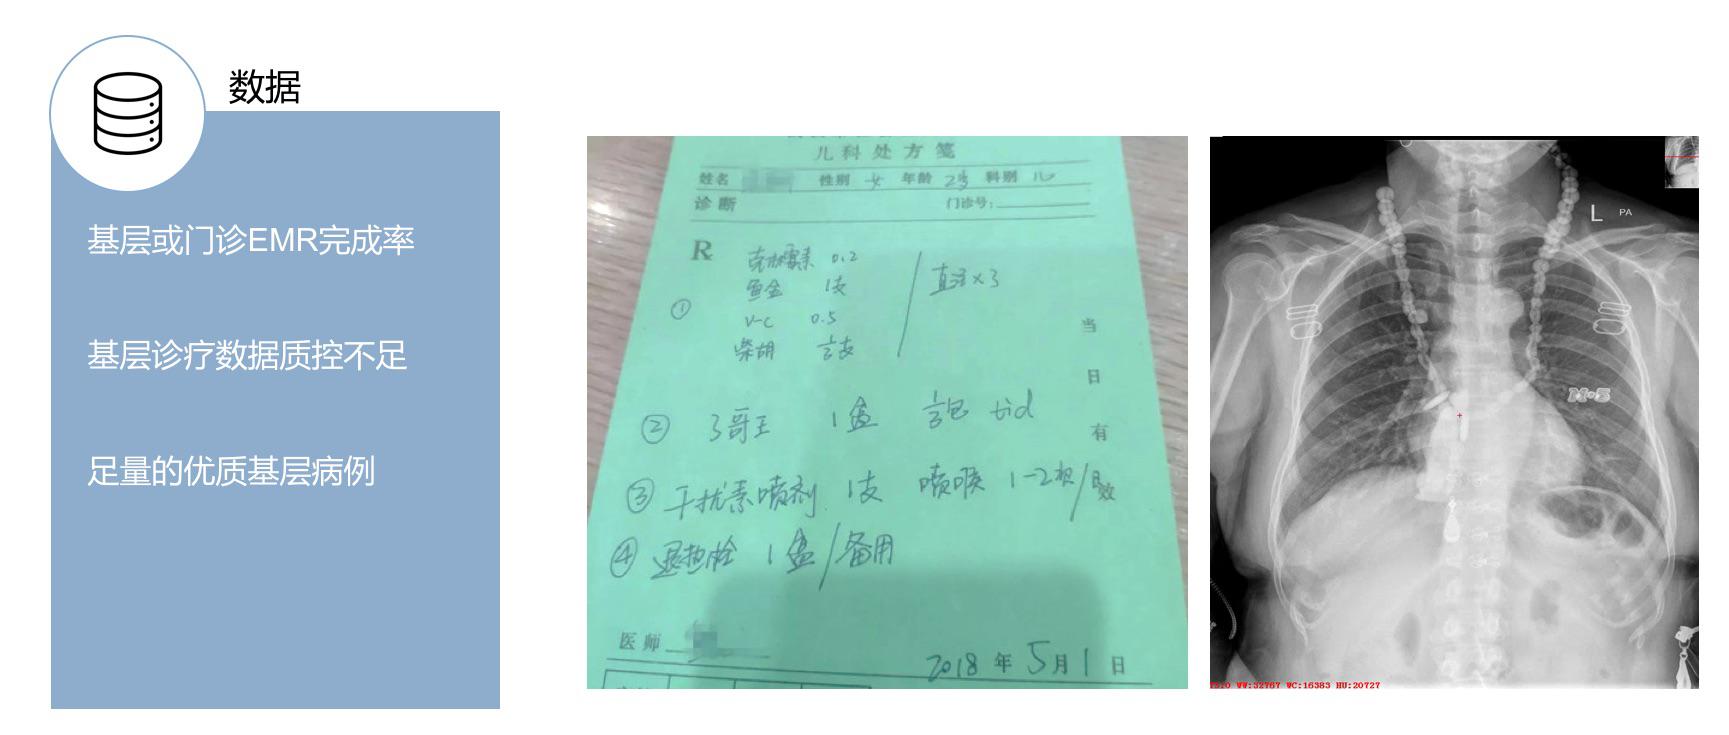 数据
基层或门诊EMR完成率
基层诊疗数据质控不足
足量的优质基层病例
儿科处方笺
姓名 性别 女 年龄 2岁 科别 儿
诊断 门诊号:
R
① 克林霉素 0.2
鱼金 1支
V-C 0.5
柴胡 支
直注×3
② 3哥王 1盒 包 tid
③ 干扰素喷剂 1支 喷喉 1-2 /日
④ 退热栓 1盒/备用
当日有效
医师
2018年5月1日
L PA
M-5
WW:32767 WC:16383 HU:20727